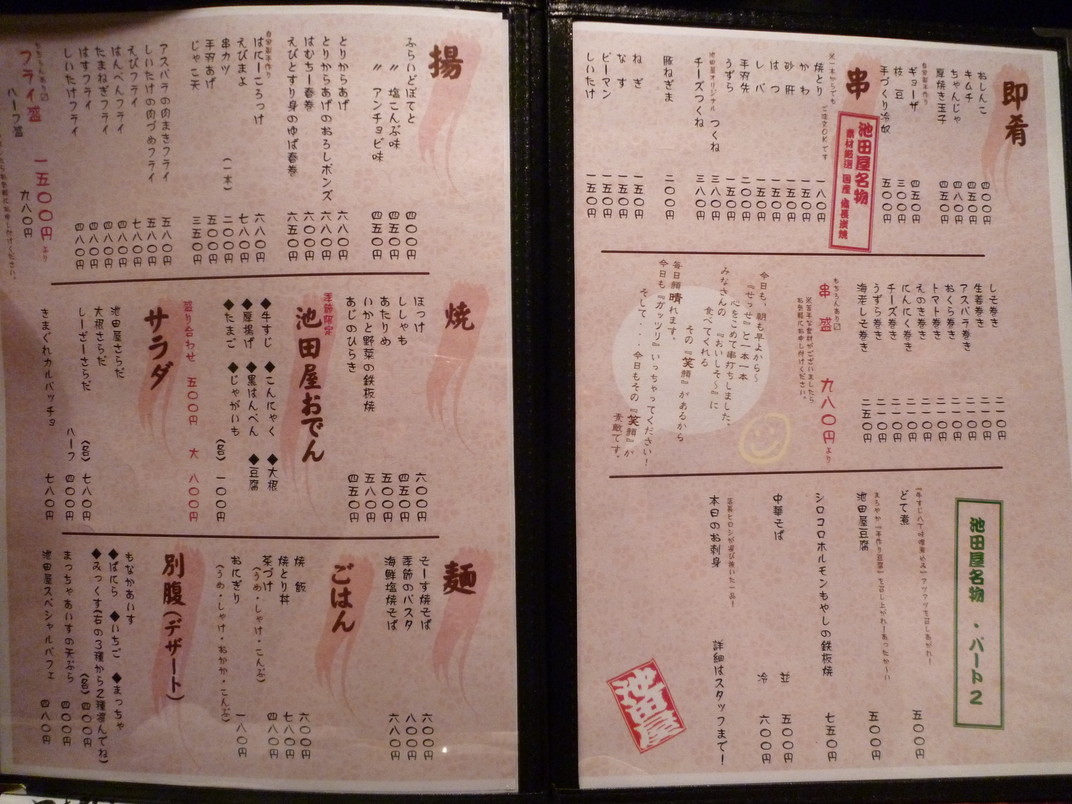 即肴
おしんこ 四〇〇円
キムチ 四五〇円
ちゃんじゃ 四八〇円
厚焼き玉子 五五〇円
自家製手作り
ギョーザ 四五〇円
枝豆 三〇〇円
手づくり冷奴 五〇〇円
串
池田屋名物
素材厳選 国産 備長炭焼
一本からでも
ご注文OKです
焼とり 一八〇円
かわ 一五〇円
砂肝 一五〇円
はつ 一五〇円
レバ 一五〇円
手羽先 二〇〇円
うずら 一五〇円
池田屋オリジナル
つくね 三八〇円
チーズつくね 三八〇円
豚ねぎま 二〇〇円
ねぎ 一五〇円
なす 一五〇円
ピーマン 一五〇円
しいたけ 一五〇円
しそ巻き 二一〇円
生姜巻き 二一〇円
アスパラ巻き 二一〇円
おくら巻き 二一〇円
トマト巻き 二一〇円
えのき巻き 二一〇円
にんにく巻き 二一〇円
チーズ巻き 二一〇円
うずら巻き 二一〇円
海老しそ巻き 二五〇円
もちろんあり〼
串盛 九八〇円より
お気軽にお申し付けください。
今日も、朝も早よから〜
『せっせ』と一本一本
心をこめて串打ちしました。
みなさんの『おいしそ〜』に
食べてくれる
その『笑顔』があるから
毎日頑晴れます。
今日も『ガッツリ』いっちゃってください！
そして・・・今日もその『笑顔』が
素敵です。
池田屋名物・パート2
どて煮 五〇〇円
池田屋豆腐 五〇〇円
シロコロホルモンもやしの鉄板焼 七五〇円
中華そば 並 五〇〇円
冷 六〇〇円
店長ヒロシが選び抜いた一品！
本日のお刺身 詳細はスタッフまで！
池田屋
揚
ふらいどぽてと 四〇〇円
〃 塩こんぶ味 四五〇円
〃 アンチョビ味 四五〇円
とりからあげ 六八〇円
とりからあげのおろしポンズ 六八〇円
はむちー春巻 六〇〇円
えびとすり身のゆば春巻 六五〇円
自家製手作り
ほにーころっけ 六八〇円
えびまよ 七八〇円
串カツ （一本） 二〇〇円
手羽あげ 五五〇円
じゃこ天 三五〇円
アスパラの肉まきフライ 五八〇円
しいたけの肉づめフライ 五八〇円
えびフライ 七八〇円
はんぺんフライ 四八〇円
たまねぎフライ 四八〇円
はすフライ 四八〇円
しいたけフライ 四八〇円
もちろんあり〼
フライ盛 一五〇〇円より
ハーフ盛 九八〇円
お気軽にお申し付けください。
焼
ほっけ 六〇〇円
ししゃも 四五〇円
あたりめ 五〇〇円
いかと野菜の鉄板焼 五八〇円
あじのひらき 四五〇円
季節限定
池田屋おでん
◆牛すじ ◆こんにゃく ◆大根
◆厚揚げ ◆黒はんぺん ◆豆腐
◆たまご ◆じゃがいも （各） 一〇〇円
盛り合わせ 五〇〇円 大 八〇〇円
サラダ
池田屋さらだ
大根さらだ
しーざーさらだ （各） 七八〇円
ハーフ 四〇〇円
きまぐれカルパッチョ 七八〇円
麺
そーす焼そば 六〇〇円
季節のパスタ 八〇〇円
海鮮塩焼そば 六八〇円
ごはん
焼飯 六〇〇円
焼とり丼 七八〇円
茶づけ 四八〇円
（うめ・しゃけ・こんぶ）
おにぎり 一八〇円
（うめ・しゃけ・おかか・こんぶ）
別腹（デザート）
もなかあいす
◆ばにら ◆いちご ◆まっちゃ
◆みっくす（右の3種から2種選んでね）
（各） 四〇〇円
まっちゃあいすの天ぷら 四〇〇円
池田屋スペシャルパフェ 四八〇円